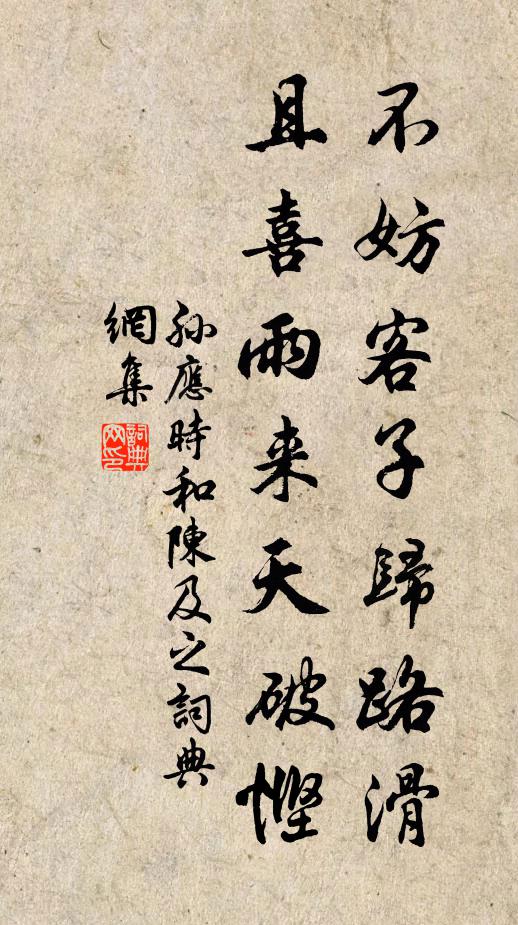 不妨客子歸路滑
且喜雨来天破慳
孫應時和陳及之詞典
網集
詞典
网印